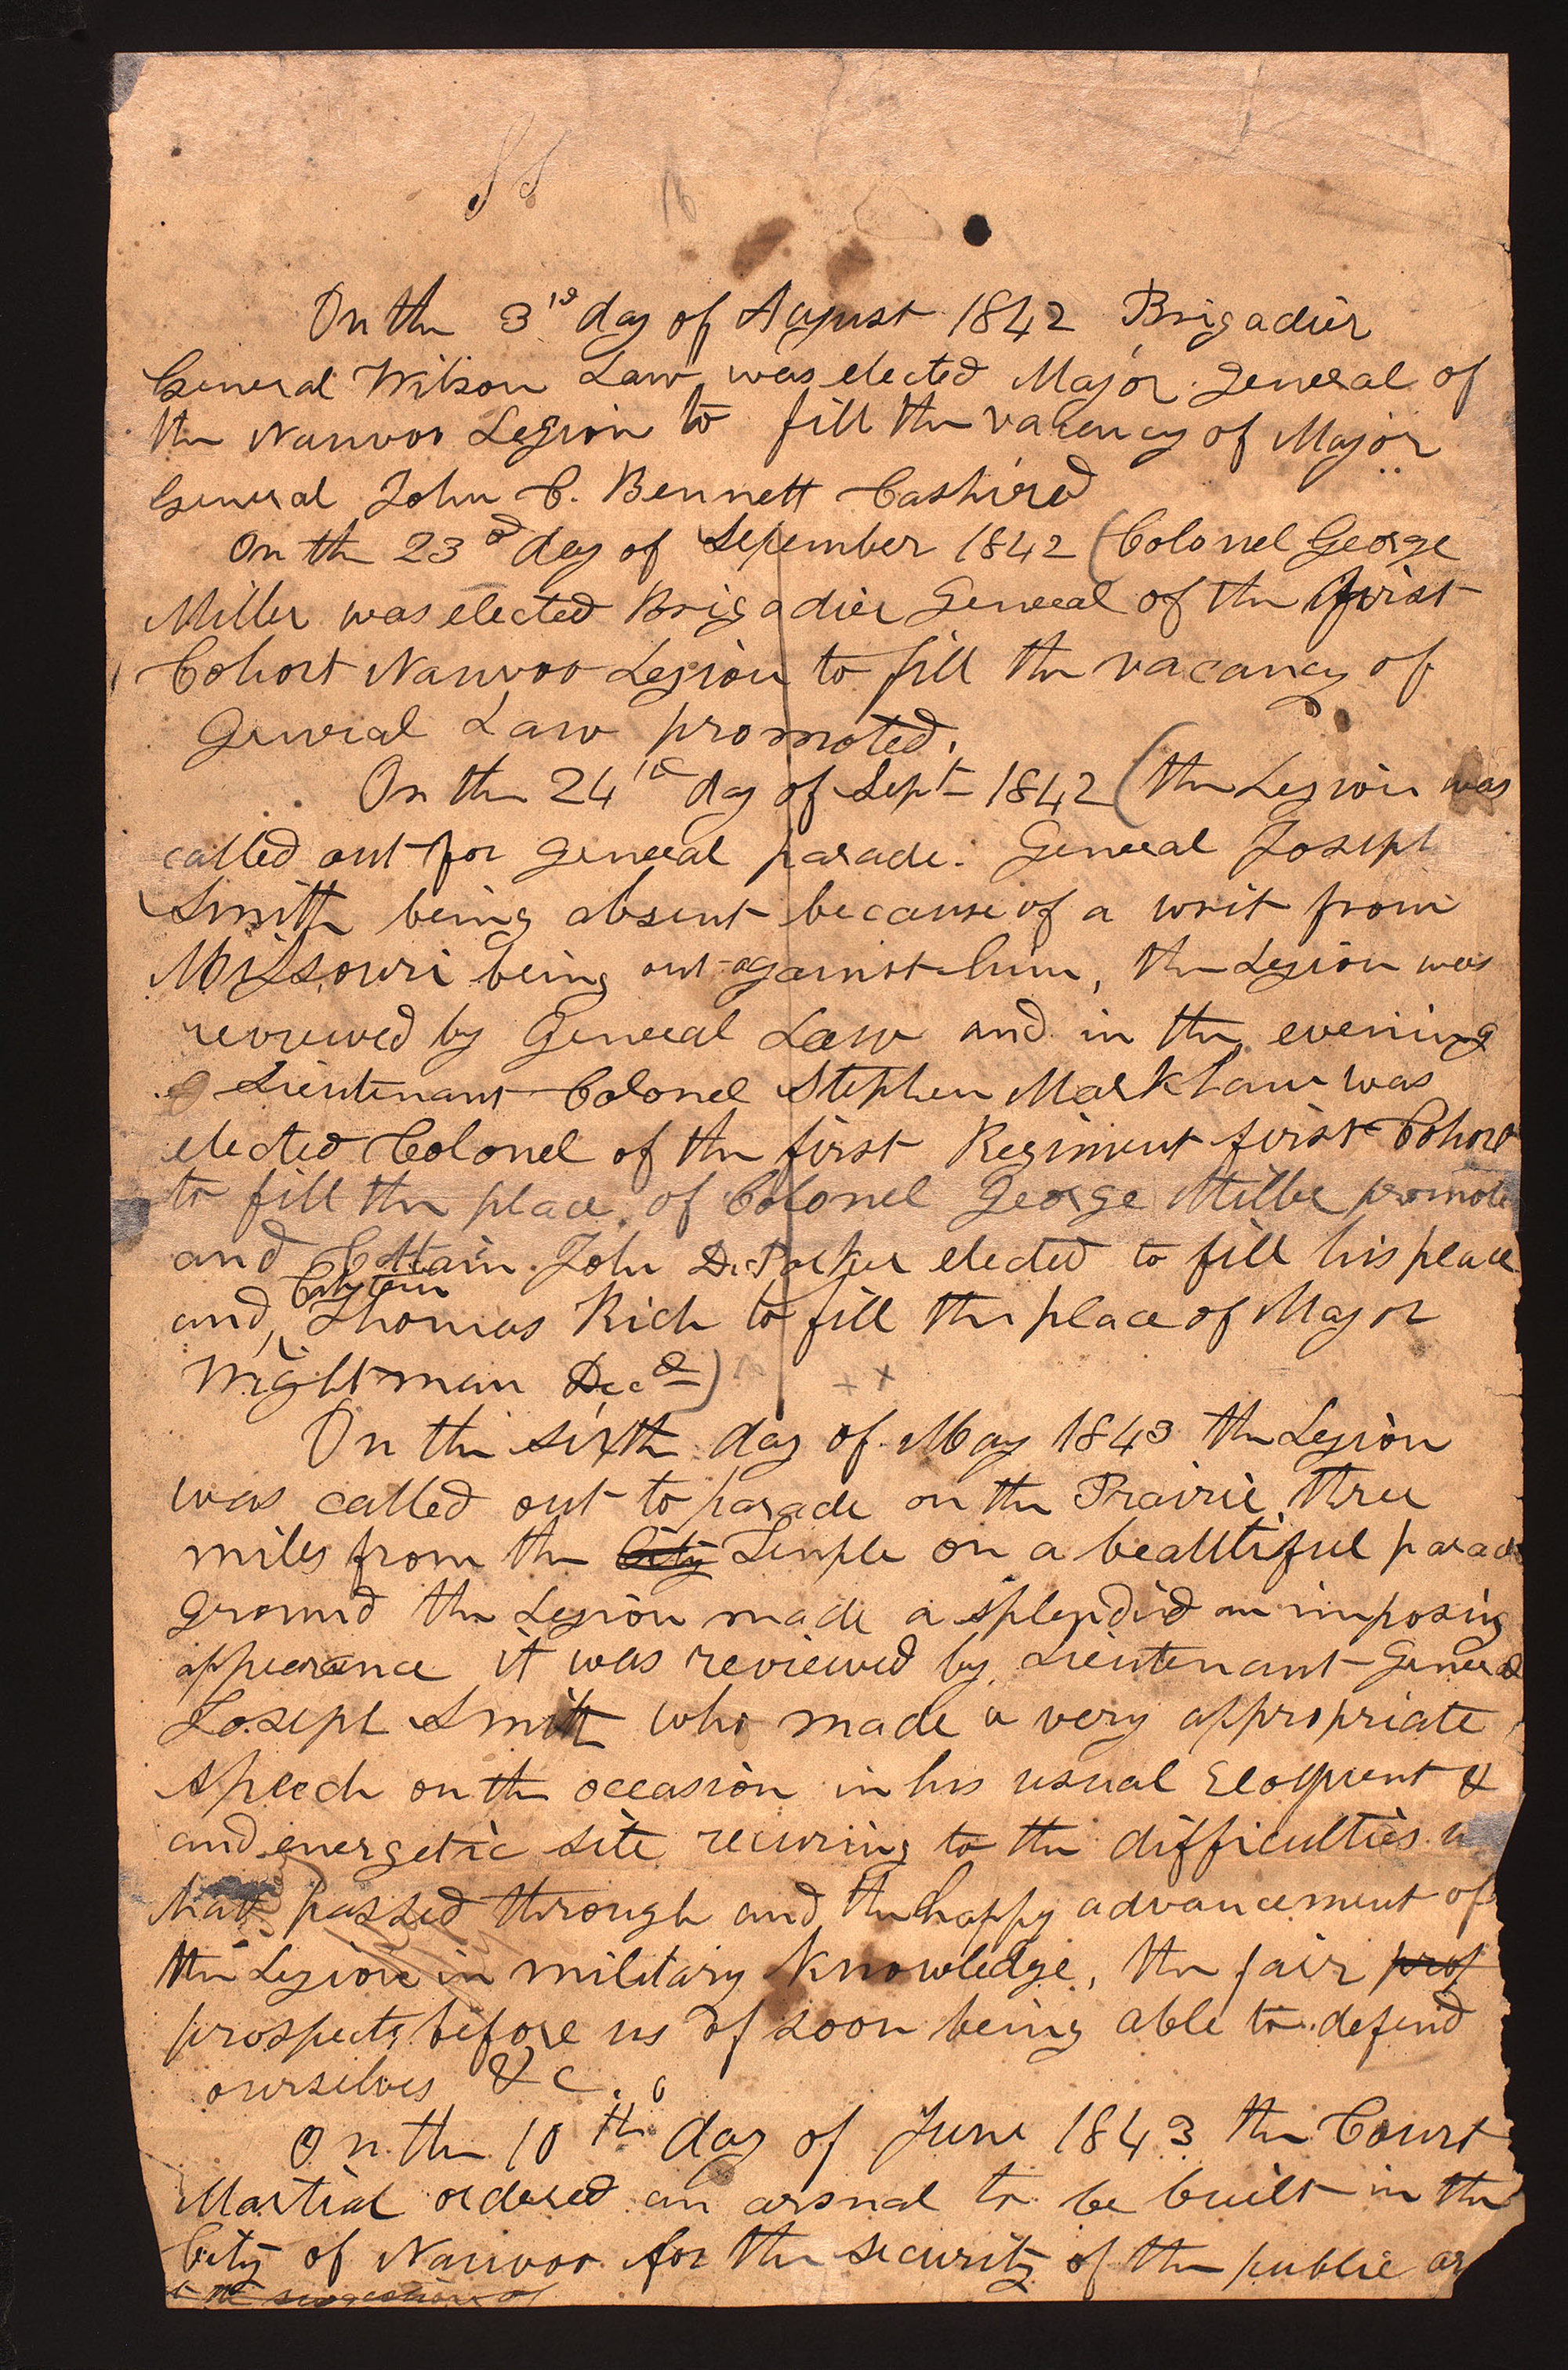 On the 3rd day of August 1842 Brigadier
General Wilson Law was elected Major General of
the Nauvoo Legion to fill the vacency of Major
General John C. Bennett Cashired
On the 23d day of September 1842 (Colonel George
Miller was elected Brigadier General of the first
Cohort Nauvoo Legion to fill the vacancy of
General Law promoted.
On the 24th day of Sept 1842 (the Legion was
called out for general parade. General Joseph
Smith being absent because of a writ from
Missouri being out against him, the Legion was
reviewed by General Law and in the evening
Lieutenant Colonel Stephen Markham was
elected Colonel of the first Regiment first Cohort
to fill the place of Colonel George Miller promote
and Cattain John D. Parker elected to fill his place
Captain
and, Thomas Rich to fill the place of Major
Wightman Decd)
On the sixth day of May 1843 the Legion
was called out to parade on the Prairie three
miles from the City Temple on a beautiful parade
ground the Legion made a splendid an imposing
appearance it was reviewed by Lieutenant General
Joseph Smith who made a very appropriate
speech on the occasion in his usual Eloquent &
and energetic stile recuring to the difficulties
have passed through and the happy advancement of
the Legion in military knowledge, the fair prof
prospects before us of soon being able to defend
ourselves &c.
On the 10th day of June 1843 the Court
Martial ordered an arsnal to be built in the
City of Nauvoo for the security of the public ar
the suggestion of